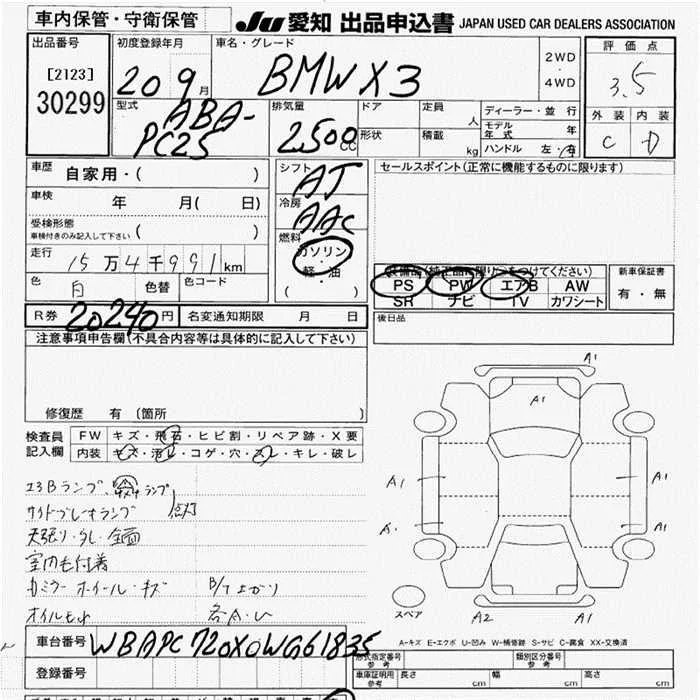 車内保管・守衛保管
JU 愛知 出品申込書 JAPAN USED CAR DEALERS ASSOCIATION
出品番号 初度登録年月 車名・グレード 評価点
[2123]
30299
20 9月
BMW X3
2WD
・
4WD
3.5
型式 排気量 ドア 定員 人 ディーラー・並行
モデル年式 年
外装 内装
ABA-
PC25
2,500cc
形状 積載 kg ハンドル 左・右
C D
車歴 自家用・( )
シフト AT
セールスポイント(正常に機能するものに限ります)
車検 年 月( 日)
冷房 AAC
受検形態
車検付きのみ記入して下さい ( )
燃料 ガソリン・軽・油
( )
走行 15万4千991km
装備品(純正品に限り○をつけてください)
新車保証書
色 白 色替 色コード
PS PW エアB AW
有・無
SR ナビ TV カワシート
R券 20240円 名変通知期限 月 日
後日品
注意事項申告欄(不具合内容等は具体的に記入して下さい)
修復歴 有 〔箇所 〕
検査員記入欄
FW キズ・飛石・ヒビ割・リペア跡・X要
内装 キズ・汚レ・コゲ・穴・スレ・キレ・破レ
A1
A1
A1 A1
A1
エアBランプ、 ランプ
サイドブレーキランプ 点灯
天張り・タレ・全面
室内毛付着
カミラー ホイール・キズ B/T上がり
オイルもれ
スペア
A2 A1
A-キズ E-エクボ U-凹み W-補修跡 S-サビ C-腐食 XX-交換済
車台番号 WBAPC720X0WG61835
登録番号
形式指定番号 参考 類別区分番号 参考
車庫証明用 参考 長さ cm 幅 cm 高さ cm